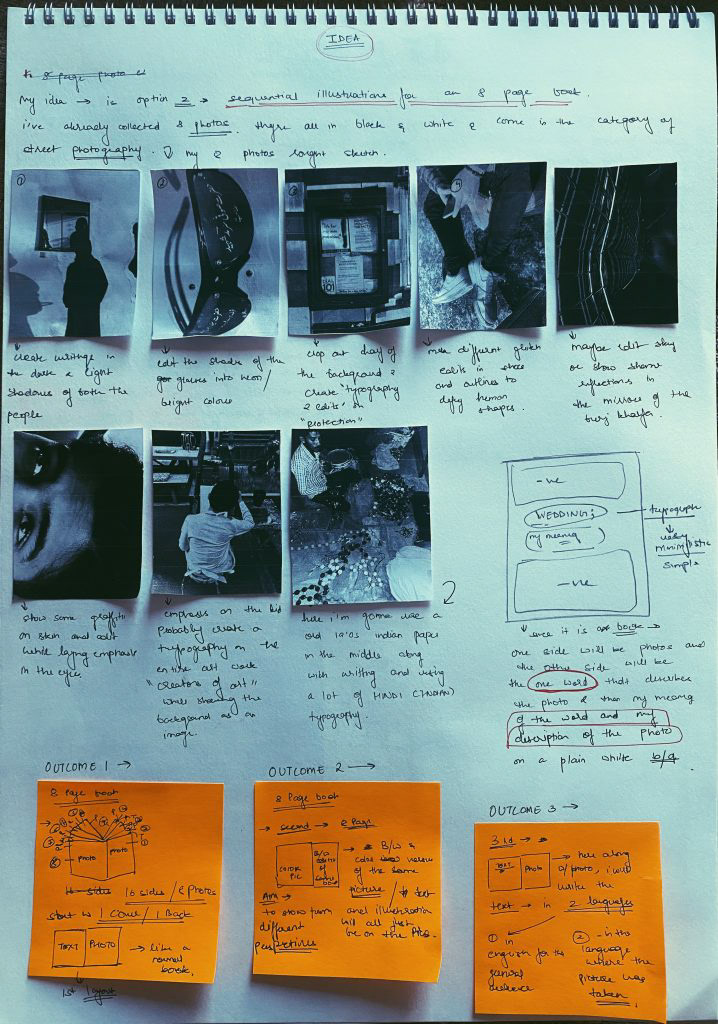 IDEA
8 page photo
My idea → is option 2 → sequential illustrations for an 8 page book.
i've already collected 8 photos. they're all in black & white & come in the category of
street photography. ↓ my 8 photos longht sketch.
① ② ③ ④
create writings in
the dark & light
shadows of both the
people
edit the shades of the
glasses into neon/
bright colour
crop out of
the background &
create "typography
& edits" on
"protection"
make different glitch
edits in shoe
and outlines to
defy human
shapes.
maybe edit
or show some
reflections in
the mirrors of the
burj khalifa.
show some graffiti
on skin and edit
while laying emphasis
on the eyes.
emphasis on the kid
probably create a
typography on the
entire art work
"creators of art"
while showing the
background as an
image.
here i'm gonna use a
old indian paper
in the middle along
with writing and using
a lot of HINDI (INDIAN)
typography.
-ve
WEDDING;
my meaning
-ve
→ typography
↓
very
minimalistic
simple
since it is a book →
one side will be photos and
the other side will be
the one word that describes
the photo & then my meaning
of the word and my
description of the photo
on a plain white b/g
OUTCOME 1 →
8 Page book
photo photo
16 sides / 8 photos
1 Cover / 1 Back
TEXT PHOTO → like a
normal
book.
1st layout
OUTCOME 2 →
8 Page book
→ second → 8 Page
COLOR
PIC
→ B/W &
color version
of the same
picture / text
and illustration
will all just
be on the pics.
Aim →
to show
different
perspectives
OUTCOME 3 →
3rd →
TEXT Photo
→ here along
w/ photo, i will
write the
text → in 2 languages
① in
english for the
general
audience
② - in the
language
where the
picture was
taken.